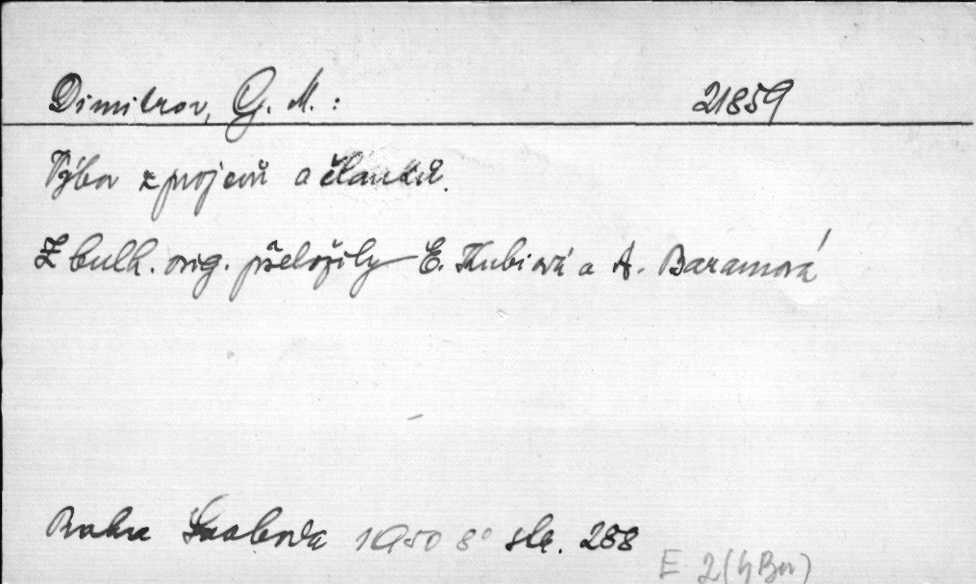 Dimitrov, G. M.: 21859
Výbor z projevů a článků.
Z bulh. orig. přeložily E. a A. Baramová
Praha Svoboda 1950 8° str. 288
E 2(4Bu)